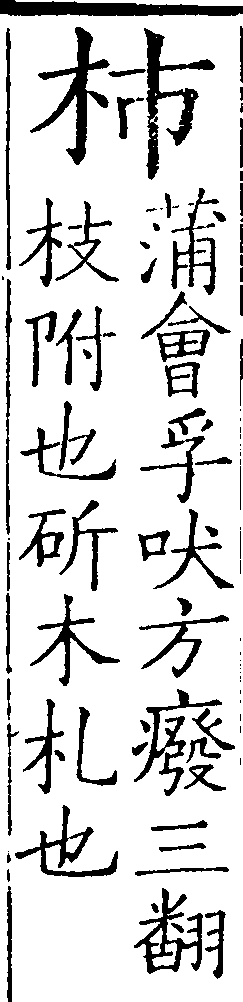 杮
蒲會孚吠方癈三翻
枝附也斫木札也